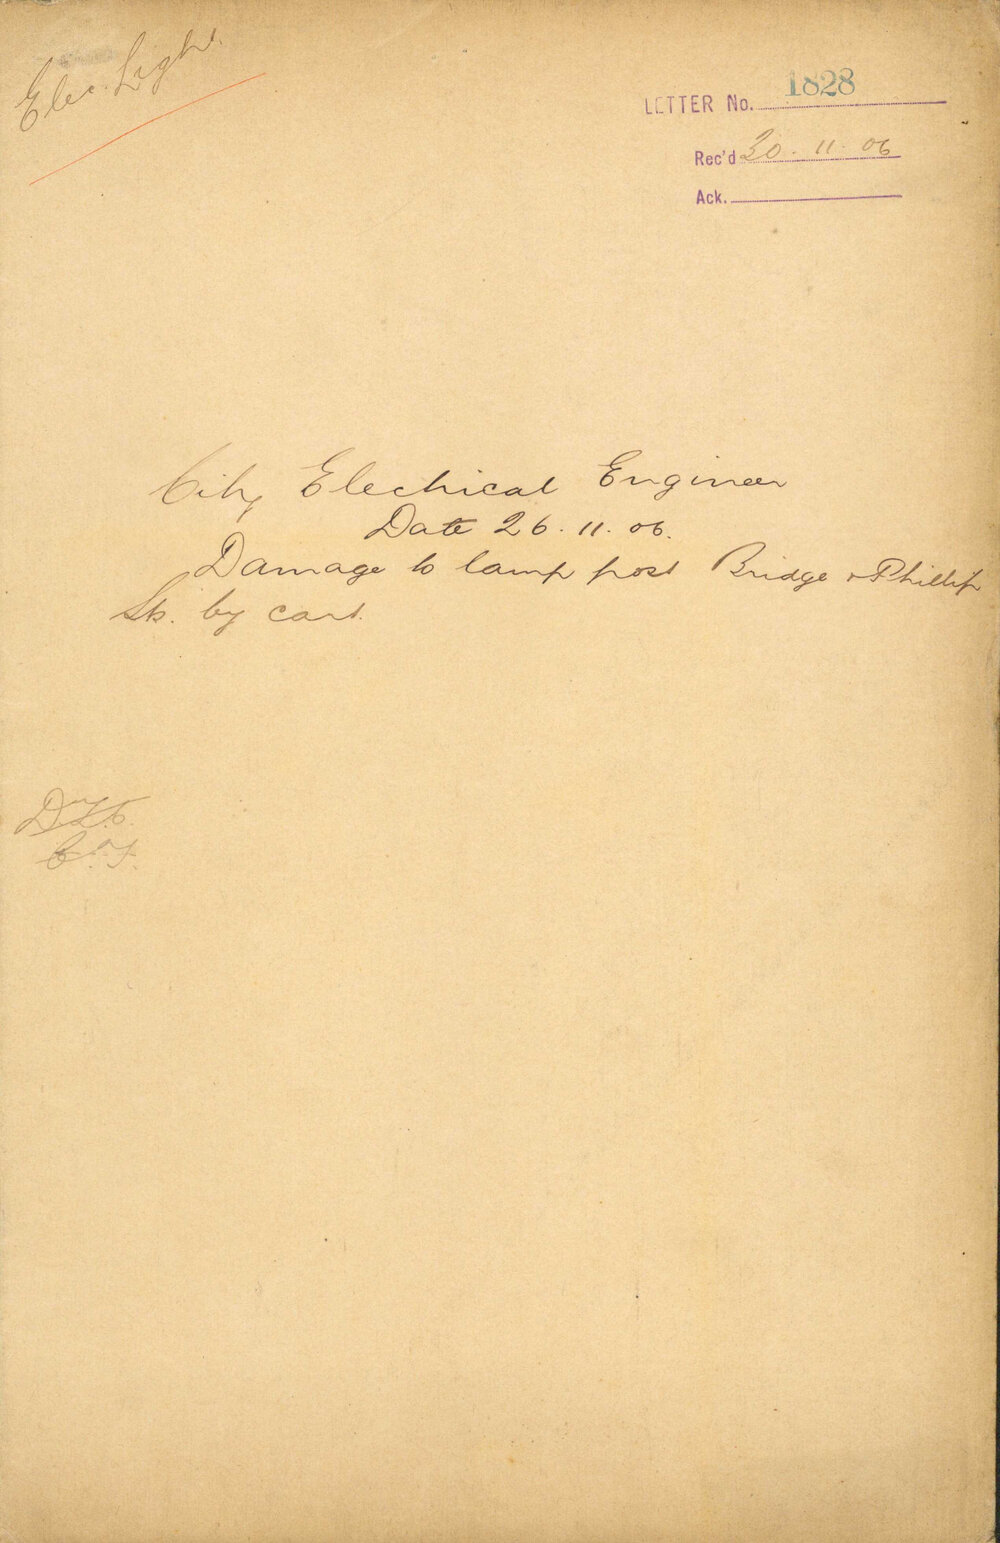 Elec. Light
LETTER No. 1828
Rec'd 30. 11. 06
Ack.
City Electrical Engineer
Date 26. 11. 06.
Damage to lamp post Bridge & Phillip
Sts. by cart.